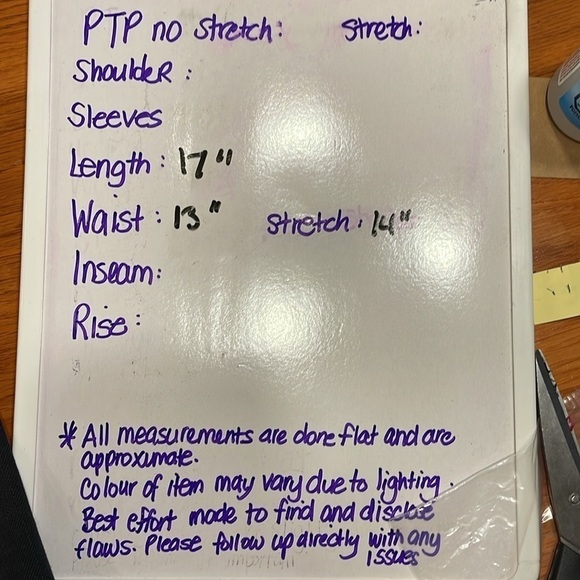 PTP no stretch: Stretch:
ShouldeR :
Sleeves
Length : 17"
Waist : 13" Stretch : 14"
Inseam:
Rise :
* All measurements are done flat and are
approximate.
Colour of item may vary due to lighting.
Best effort made to find and disclose
flaws. Please follow up directly with any
Issues